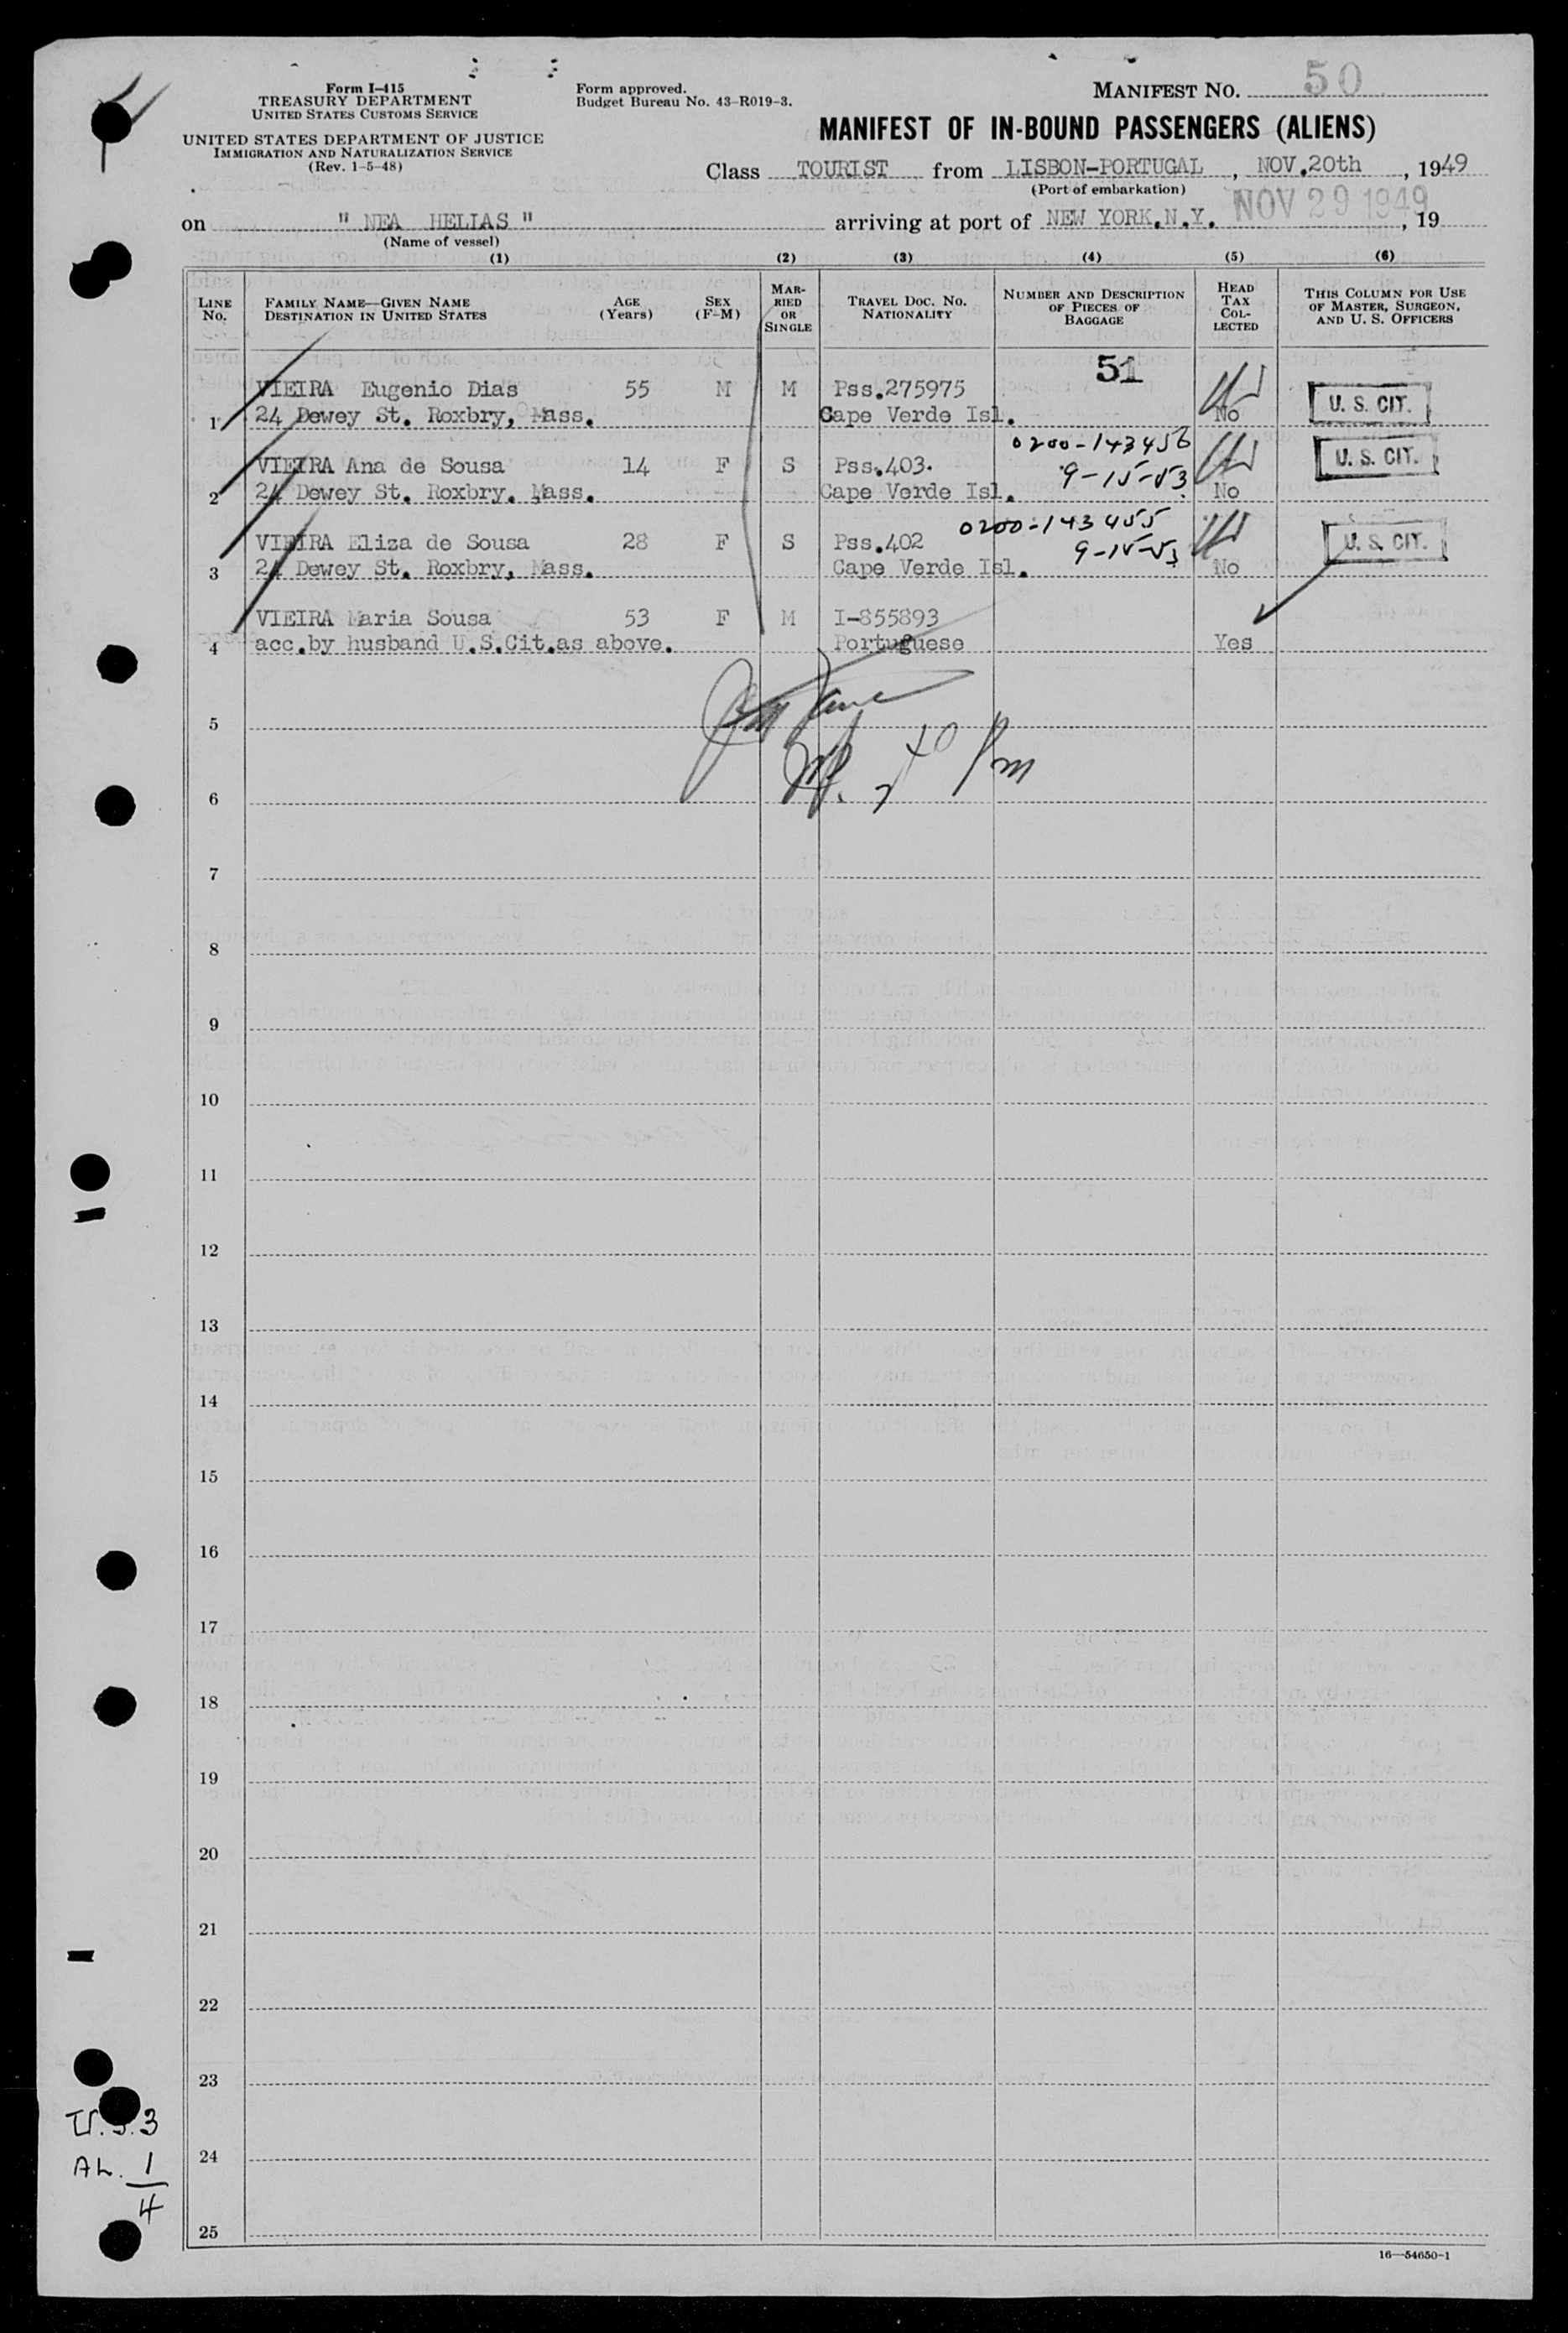 Form I-415
TREASURY DEPARTMENT
UNITED STATES CUSTOMS SERVICE
UNITED STATES DEPARTMENT OF JUSTICE
IMMIGRATION AND NATURALIZATION SERVICE
(Rev. 1-5-48)
Form approved.
Budget Bureau No. 43-R019-3.
MANIFEST NO. 50
MANIFEST OF IN-BOUND PASSENGERS (ALIENS)
Class TOURIST from LISBON-PORTUGAL, NOV.20th, 1949
(Port of embarkation)
on " NEA HELIAS " arriving at port of NEW YORK.N.Y. NOV 29 1949, 19
(Name of vessel)
(1) (2) (3) (4) (5) (6)
LINE No. FAMILY NAME—GIVEN NAME DESTINATION IN UNITED STATES AGE (Years) SEX (F-M) MARRIED OR SINGLE TRAVEL DOC. NO. NATIONALITY NUMBER AND DESCRIPTION OF PIECES OF BAGGAGE HEAD TAX COLLECTED THIS COLUMN FOR USE OF MASTER, SURGEON, AND U. S. OFFICERS
51
VIEIRA Eugenio Dias 55 M M Pss.275975
1 24 Dewey St. Roxbry, Mass. Cape Verde Isl. No U. S. CIT.
0200-143456
VIEIRA Ana de Sousa 14 F S Pss.403. 9-15-53 U. S. CIT.
2 24 Dewey St. Roxbry. Mass. Cape Verde Isl. No
0200-143455
VIEIRA Eliza de Sousa 28 F S Pss.402 9-15-53 U. S. CIT.
3 24 Dewey St. Roxbry, Mass. Cape Verde Isl. No
VIEIRA Maria Sousa 53 F M I-855893
4 acc.by husband U.S.Cit.as above. Portuguese Yes
5
6
7
8
9
10
11
12
13
14
15
16
17
18
19
20
21
22
23
24
25
U.S.3
AL. 1
4
16—54650-1